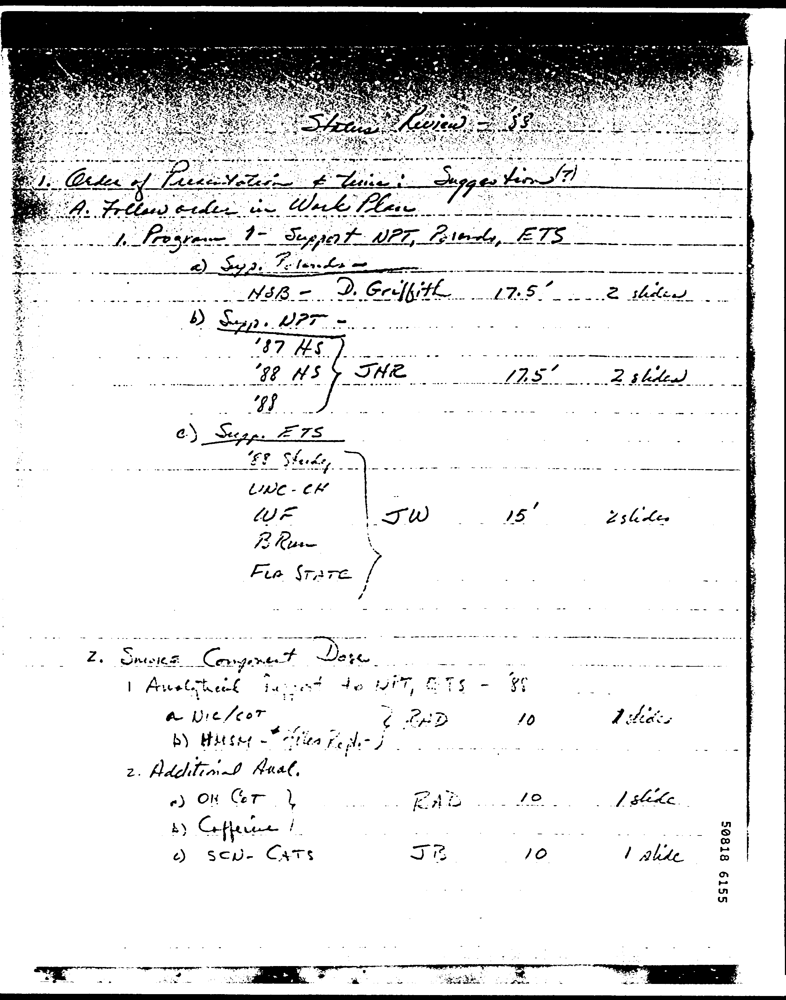 Status Review - '88
1. Order of Presentation & time: Suggestion(?)
A. Follow order in Work Plan
1. Program 1 - Support NPT, ETS
a) Supp.
HSB - D. Griffith 17.5' 2 slides
b) Supp. NPT -
'87 HS
'88 HS } JHR 17.5' 2 slides
'88
c) Supp. ETS
'88 Study
UNC-CH
WF } JW 15' 2 slides
B Run
FLA STATE
2. Smoke Component Dose
1 Analytical Support to NPT, ETS - '88
a NIC/COT } RAD 10 slides
b) HMSM -
2. Additional Anal.
a) OH COT } RAD 10 1 slide
b) Caffeine
c) SCN - CATS JB 10 1 slide
50818 6155